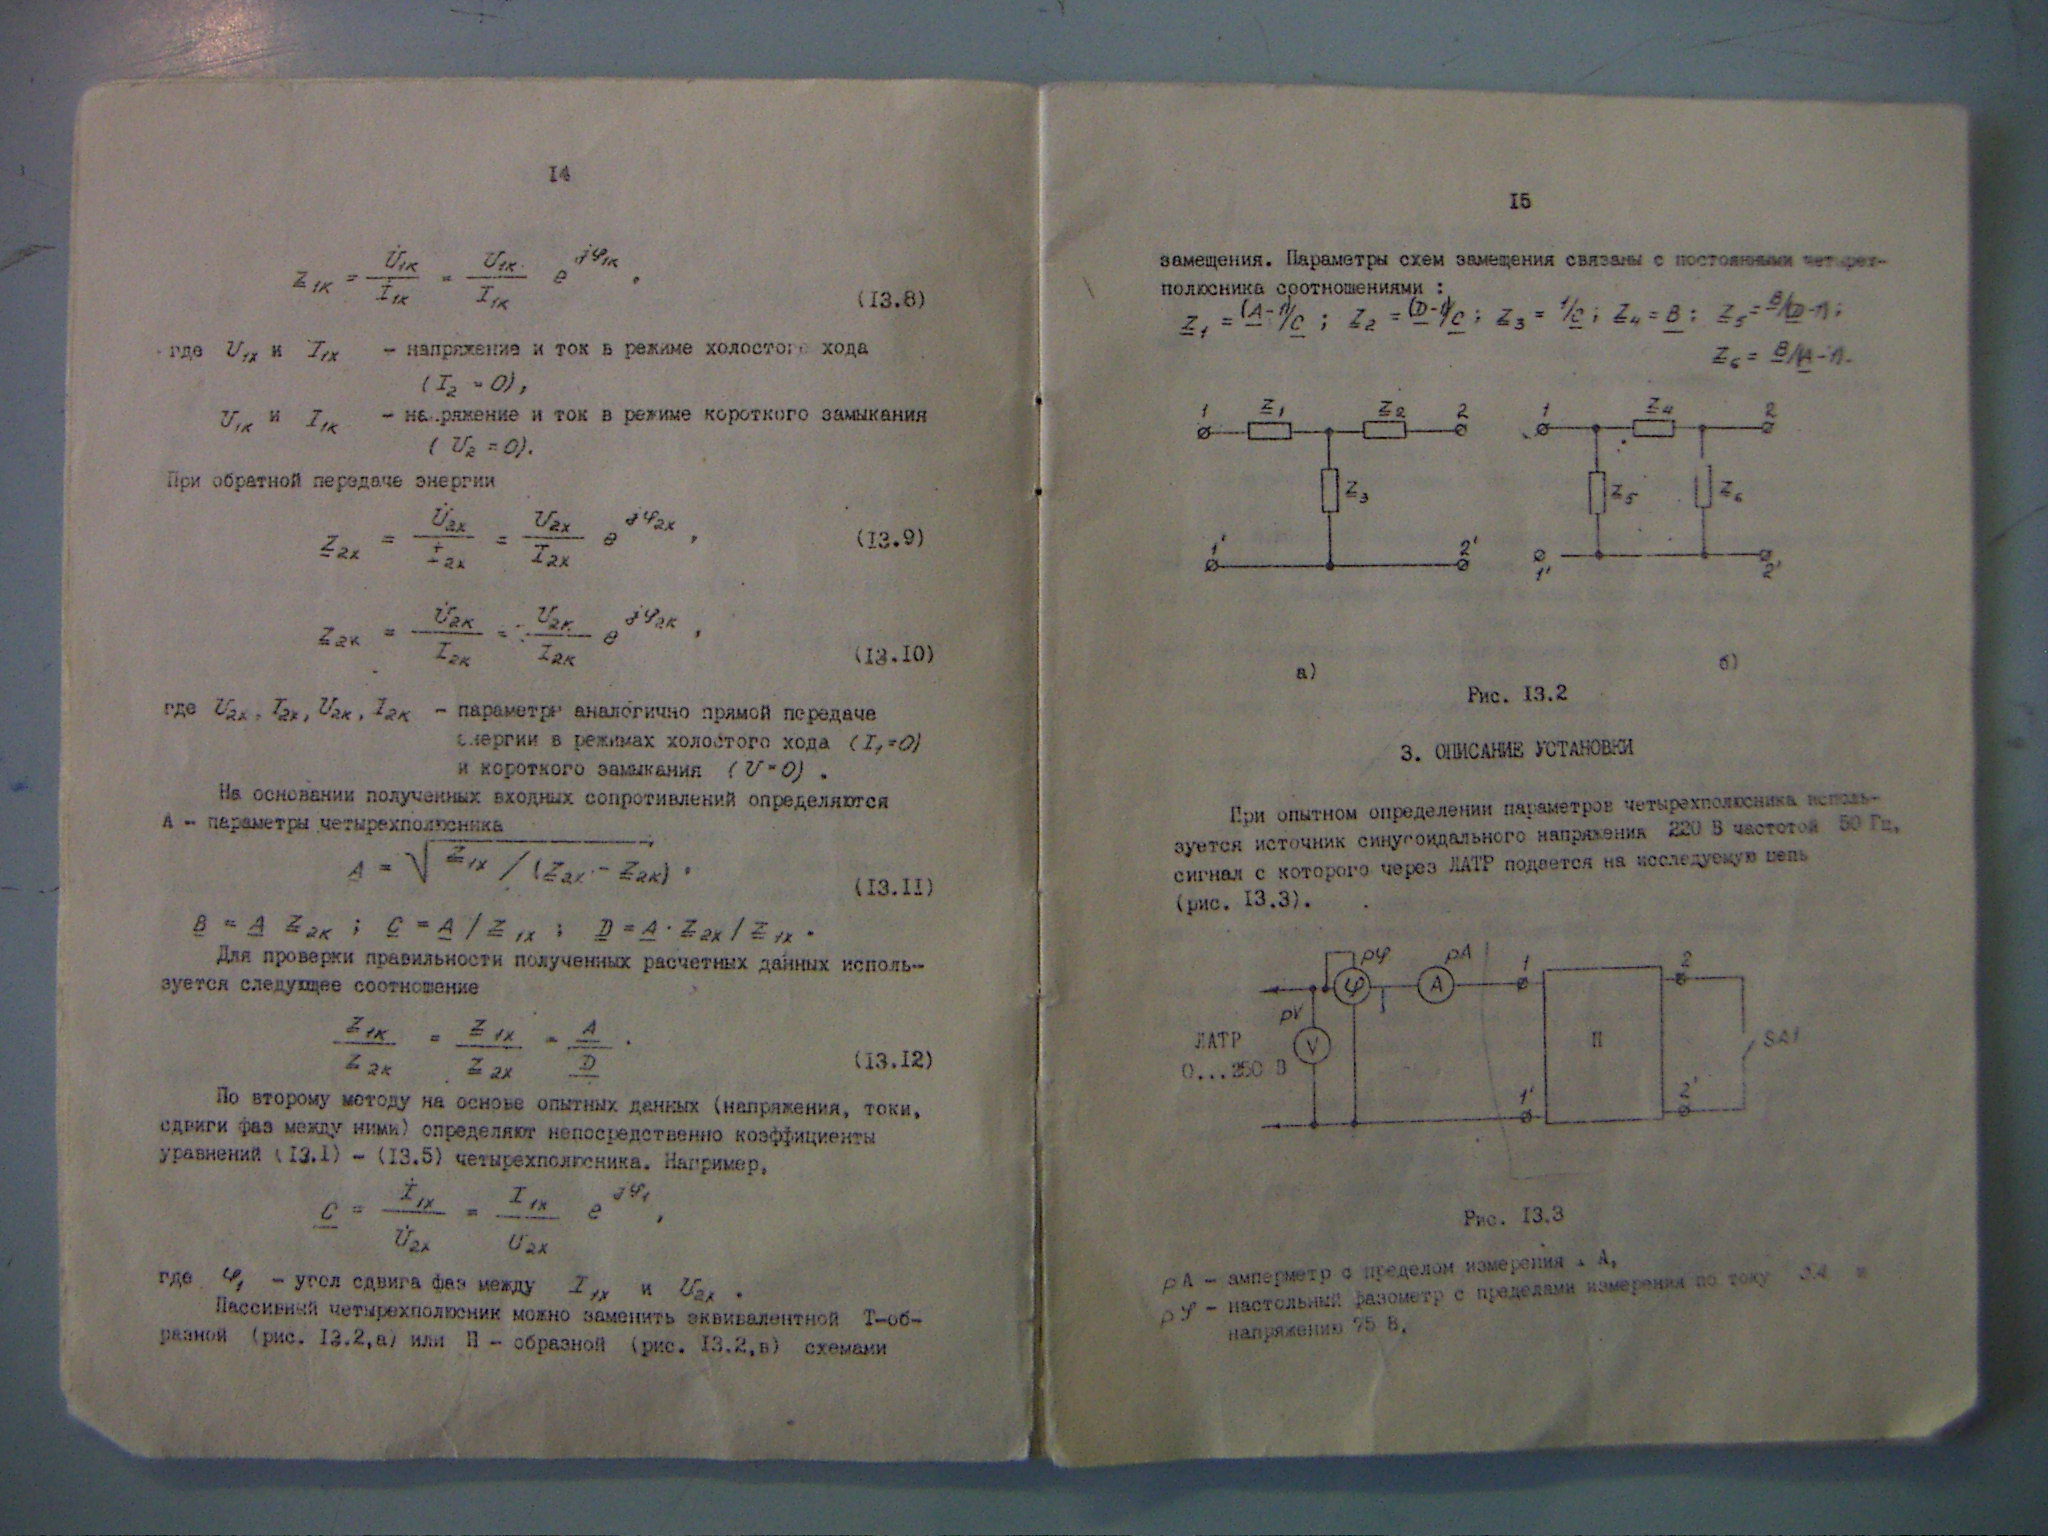 I4
Z̲₁ₖ = U̇₁ₖ / İ₁ₖ = U₁ₖ / I₁ₖ e^jφ₁ₖ , (I3.8)
где U₁ₓ и I₁ₓ - напряжение и ток в режиме холостого хода
(I₂ = 0),
U₁ₖ и I₁ₖ - напряжение и ток в режиме короткого замыкания
( U₂ = 0).
При обратной передаче энергии
Z̲₂ₓ = U̇₂ₓ / İ₂ₓ = U₂ₓ / I₂ₓ e^jφ₂ₓ , (I3.9)
Z̲₂ₖ = U̇₂ₖ / I₂ₖ = U₂ₖ / I₂ₖ e^jφ₂ₖ , (I3.I0)
где U₂ₓ, I₂ₓ, U₂ₖ, I₂ₖ - параметры аналогично прямой передаче
энергии в режимах холостого хода (I₁=0)
и короткого замыкания (U=0) .
На основании полученных входных сопротивлений определяются
А - параметры четырехполюсника
A̲ = √ Z̲₁ₓ / (Z̲₂ₓ - Z̲₂ₖ) , (I3.II)
B̲ = A̲ Z̲₂ₖ ; C̲ = A̲ / Z̲₁ₓ ; D̲ = A̲ · Z̲₂ₓ / Z̲₁ₓ .
Для проверки правильности полученных расчетных данных исполь-
зуется следующее соотношение
Z̲₁ₖ / Z̲₂ₖ = Z̲₁ₓ / Z̲₂ₓ = A̲ / D̲ . (I3.I2)
По второму методу на основе опытных данных (напряжения, токи,
сдвиги фаз между ними) определяют непосредственно коэффициенты
уравнений (I3.I) - (I3.5) четырехполюсника. Например,
C̲ = İ₁ₓ / U̇₂ₓ = I₁ₓ / U₂ₓ e^jφ₁ ,
где φ₁ - угол сдвига фаз между I₁ₓ и U₂ₓ .
Пассивный четырехполюсник можно заменить эквивалентной Т-об-
разной (рис. I3.2,а) или П - образной (рис. I3.2,в) схемами
I5
замещения. Параметры схем замещения связаны с постоянными четырех-
полюсника соотношениями :
Z̲₁ = (A̲-1)/C̲ ; Z̲₂ = (D̲-1)/C̲ ; Z̲₃ = 1/C̲ ; Z̲₄ = B̲ ; Z̲₅ = B̲/(D̲-1) ;
Z̲₆ = B̲/(A̲-1).
1 Z̲₁ Z̲₂ 2 1 Z̲₄ 2
Z̲₃ Z̲₅ Z̲₆
1' 2' 1' 2'
а) б)
Рис. I3.2
3. ОПИСАНИЕ УСТАНОВКИ
При опытном определении параметров четырехполюсника исполь-
зуется источник синусоидального напряжения 220 В частотой 50 Гц,
сигнал с которого через ЛАТР подается на исследуемую цепь
(рис. I3.3).
pφ pA 1 2
φ A
pV
ЛАТР V П SA1
0...250 В
1' 2'
Рис. I3.3
pA - амперметр с пределом измерения А,
pφ - настольный фазометр с пределами измерения по току и
напряжению 75 В.